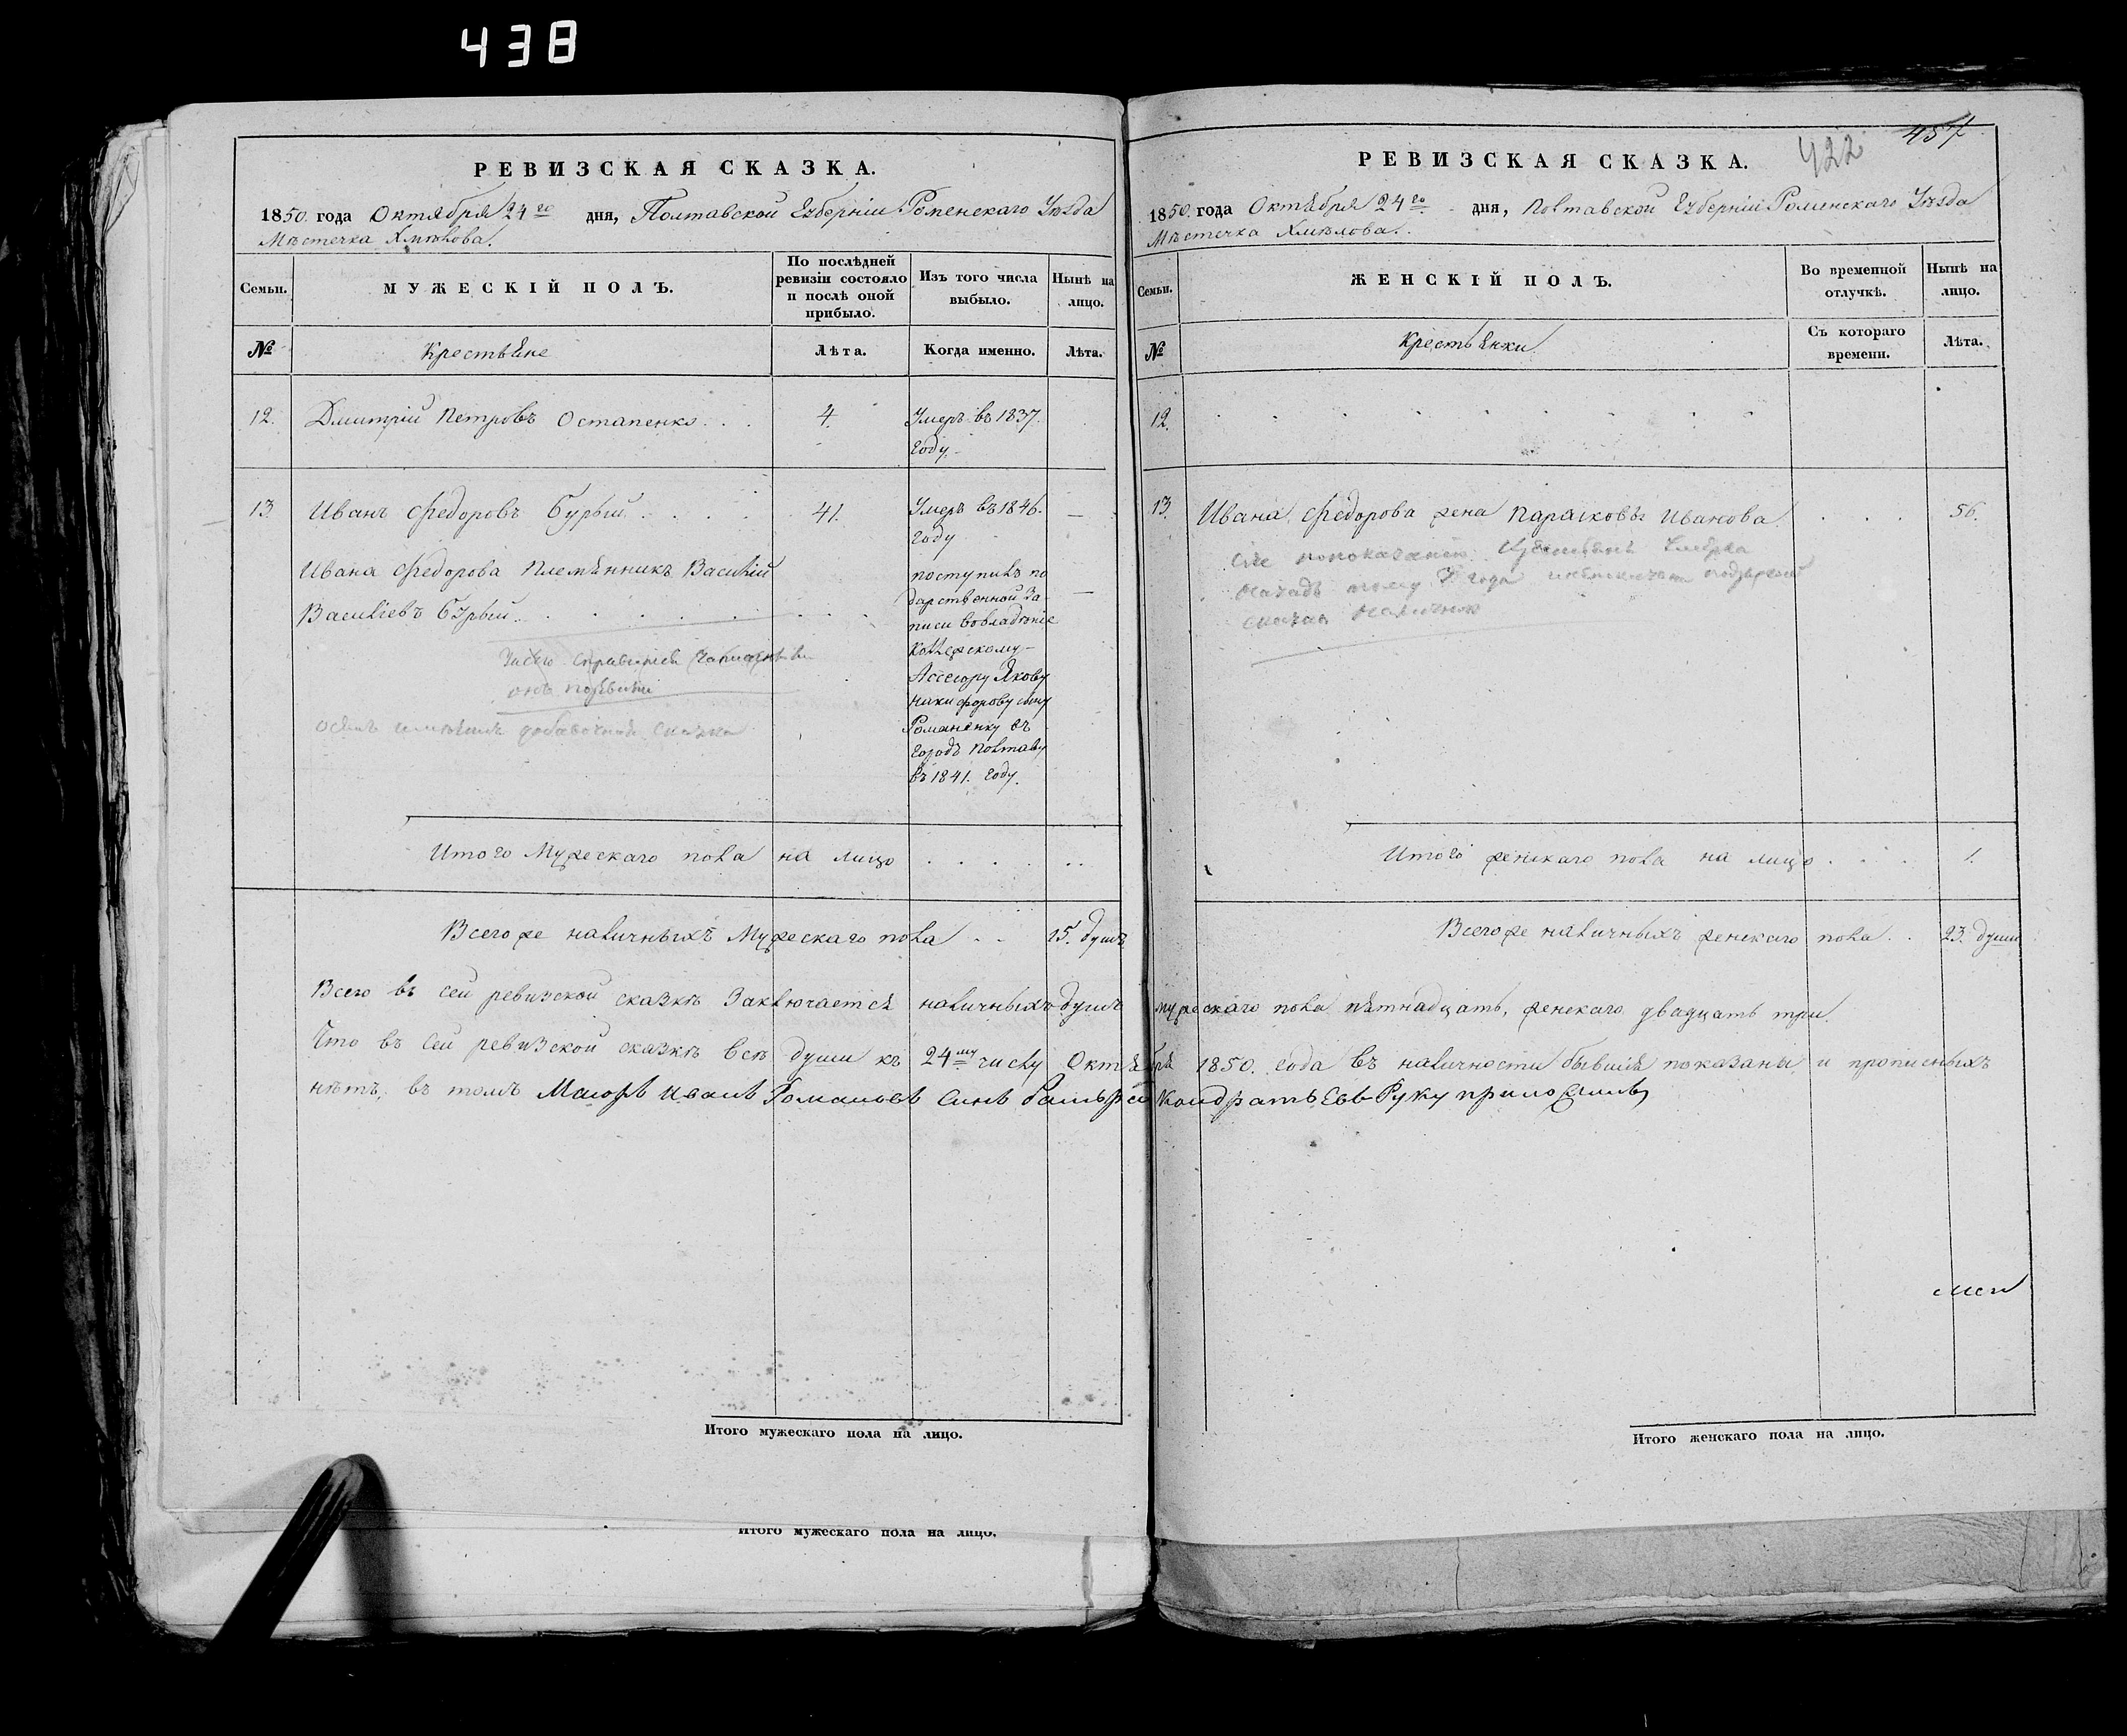 438
РЕВИЗСКАЯ СКАЗКА.
1850. года Октября 24го дня, Полтавской Губерніи Роменскаго Уѣзда
Мѣстечка Хмѣлова.
Семьи.
МУЖЕСКІЙ ПОЛЪ.
По послѣдней ревизіи состояло и послѣ оной прибыло.
Изъ того числа выбыло.
Нынѣ на лицо.
№
Крестьяне
Лѣта.
Когда именно.
Лѣта.
12. Дмитрій Петровъ Остапенко . . . 4. Умеръ въ 1837.
году.
13. Иванъ Федоровъ Бурый . . . . 41. Умеръ въ 1846. —
году
Ивана Федорова Племянникъ Василій
Васильевъ Бурый . . . . . . . —
поступилъ по
дарственной За-
писи вовладѣніе
Коллежскому
Ассесору Якову
Никифорову сыну
Романенку въ
городъ Полтаву
въ 1841. году.
онъ
сказка
Итого Мужескаго пола на лицо . . . . . . .
Всегоже наличныхъ Мужескаго пола . . 15. душъ
457
422
РЕВИЗСКАЯ СКАЗКА.
1850. года Октября 24го дня, Полтавской Губерніи Роменскаго Уѣзда
Мѣстечка Хмѣлова.
Семьи.
ЖЕНСКІЙ ПОЛЪ.
Во временной отлучкѣ.
Нынѣ на лицо.
№
Крестьянки
Съ котораго времени.
Лѣта.
12.
13. Ивана Федорова жена Парасковья Иванова . . . 56.
Сія попоказанію
назадъ тому года
Итого женскаго пола на лицо . . . 1.
Всегоже наличныхъ женскаго пола . . 23. души
Всего въ сей ревизской сказкѣ Заключается наличныхъ душъ мужескаго пола пятнадцать, женскаго двадцать три.
Что въ Сей ревизской сказкѣ всѣ души къ 24му числу Октября 1850. года въ наличности бывшія показаны и прописныхъ
нѣтъ, въ томъ Маіоръ Иванъ Романовъ Синъ Кондратьевъ Руку приложилъ
Итого мужескаго пола на лицо.
Итого женскаго пола на лицо.
Итого мужескаго пола на лицо.